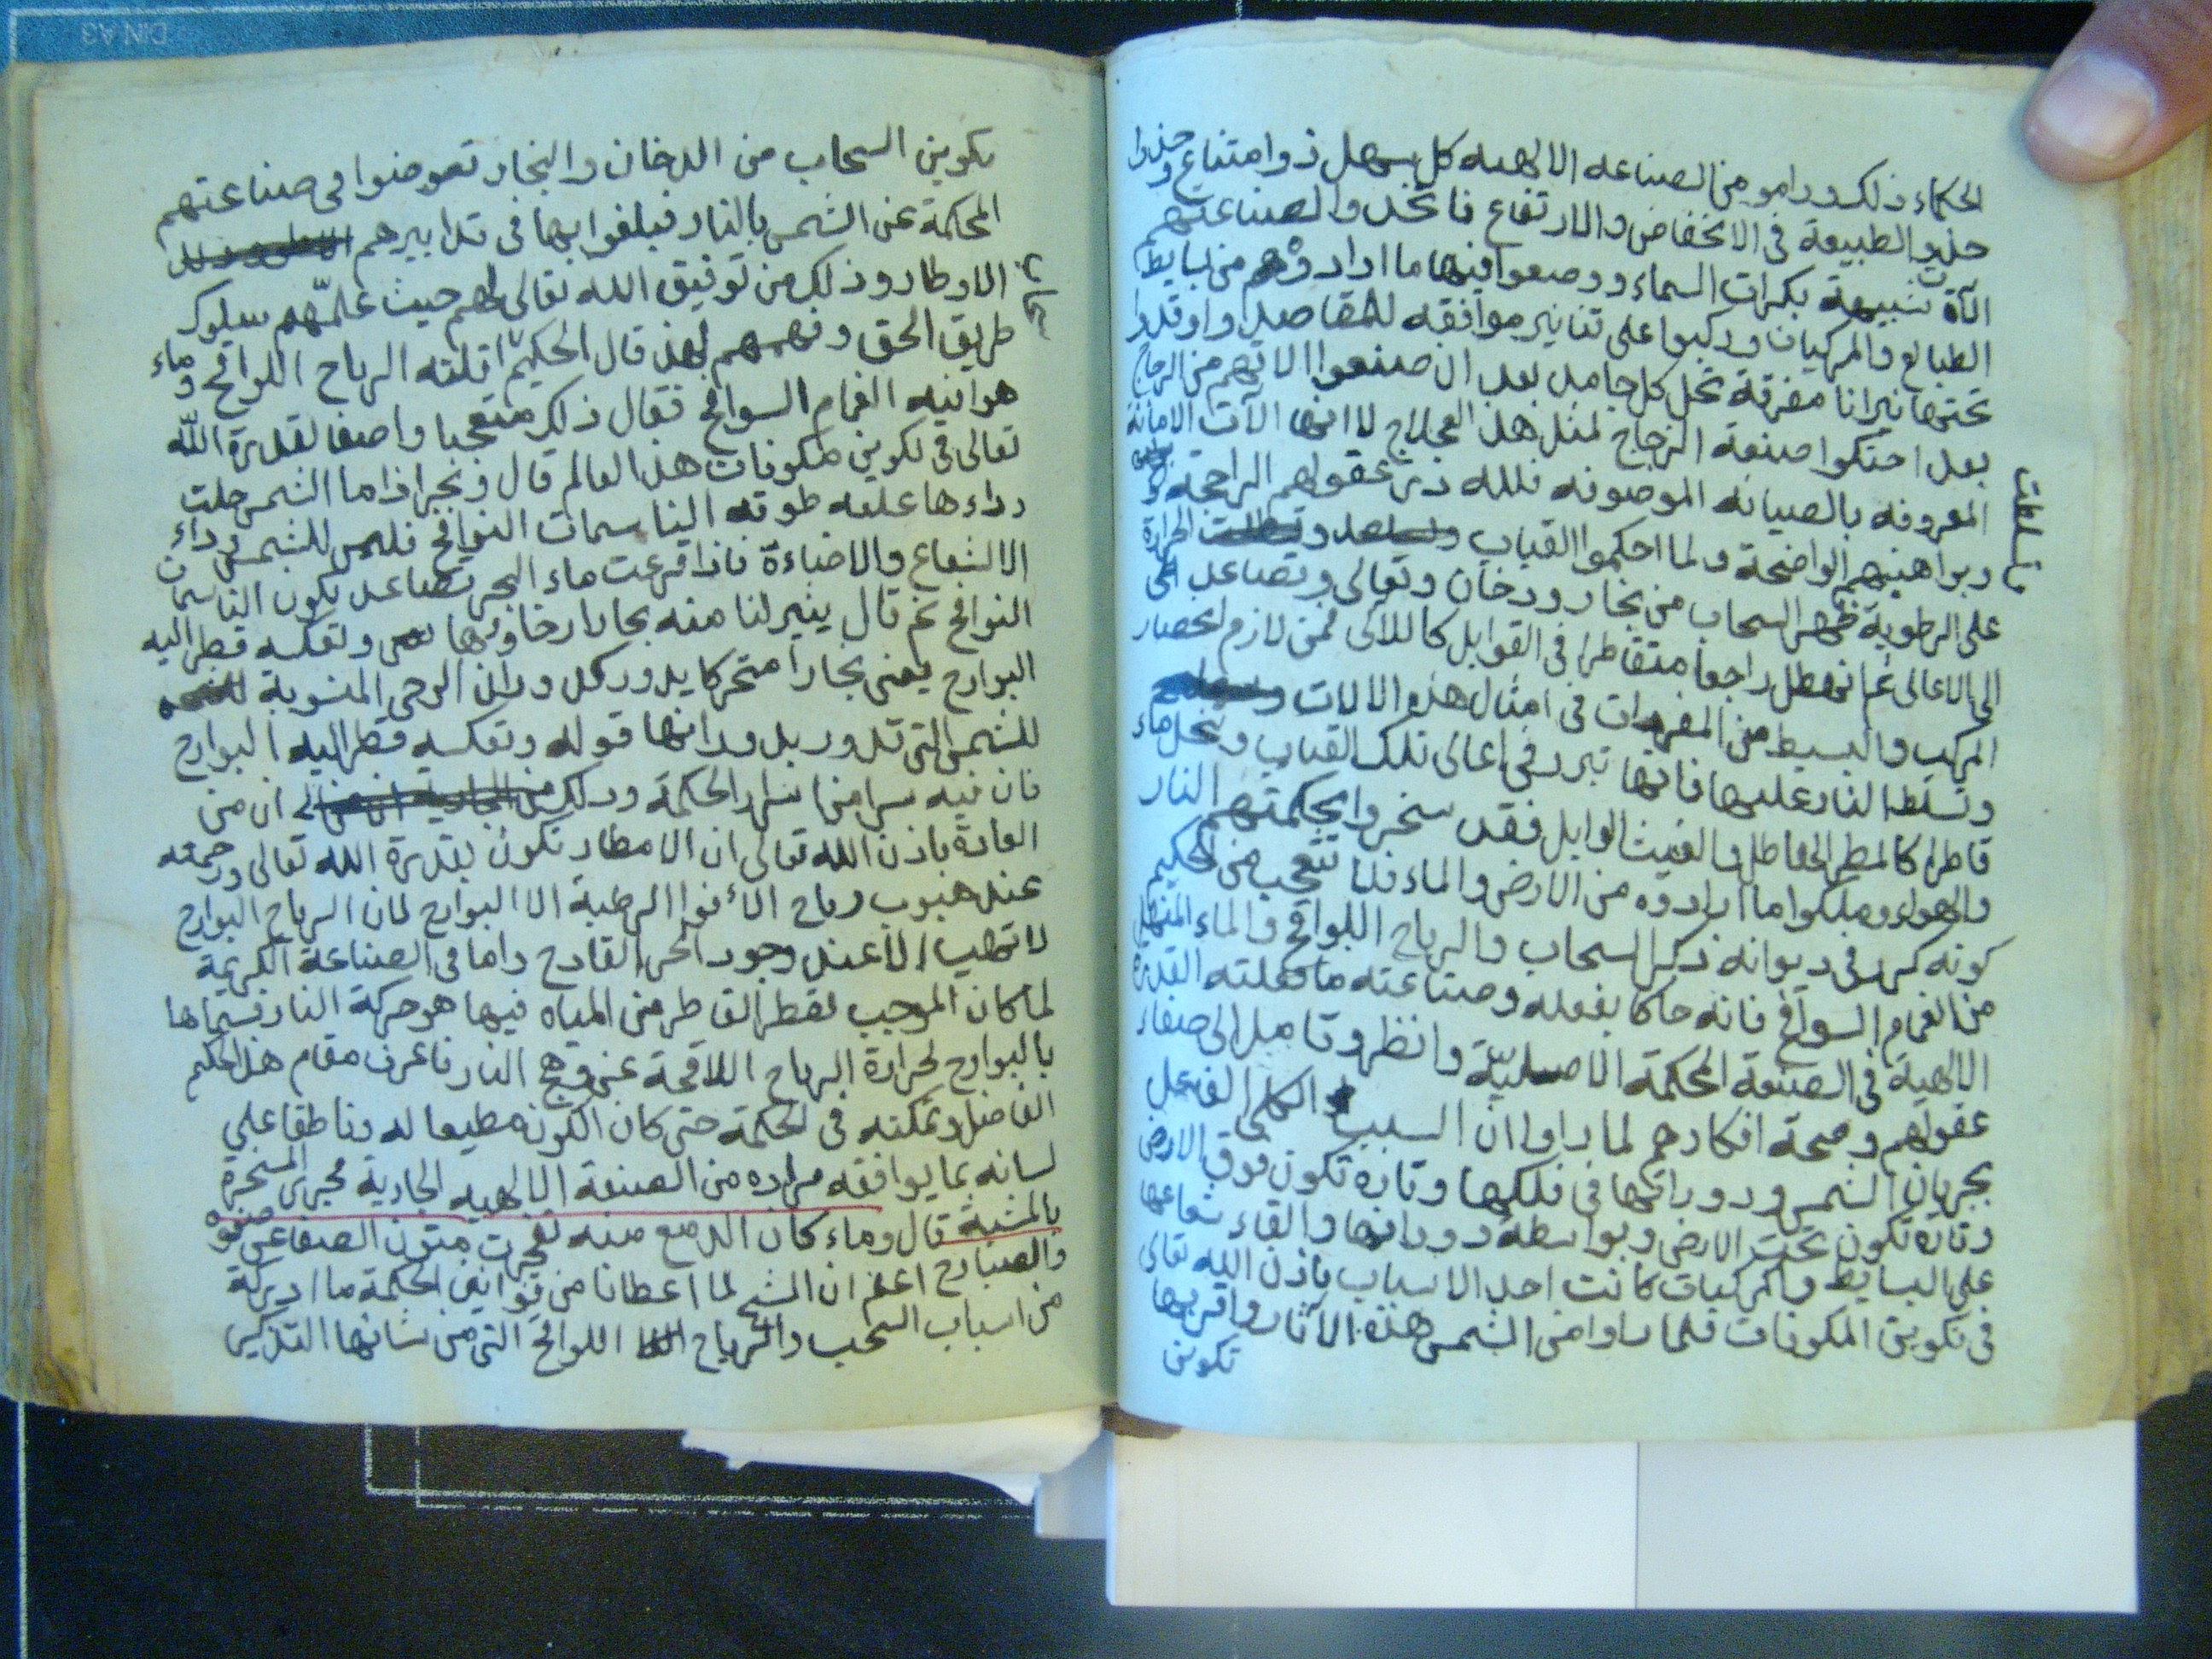 الحكماء ذلك وراموا من الصناعه الالهيه كل سهل ذو امتناع وحذوا
حذو الطبيعة في الانخفاض والارتفاع فاتخذوا لصناعتهم
الآة شبيهة بكرات السماء ووضعوا فيها ما ارادوه من بسايط
الطبايع والمركبات وركبوا على تنانير موافقه للمقاصد واوقدوا
تحتها نيرانا مفرقة تحل كل جامد بعد ان صنعوا الاتهم من الزجاج
بعد احتكوا صنعة الزجاج لمثل هذا العلاج لانها الآت الامانة
المعروفه بالصيانه الموصوفه فلله در عقولهم الراجحة
وبراهنيهم الواضحة ولما احكموا القباب وتسلطت الحرارة
على الرطوبة ظهر السحاب من بخار ودخان وتعالى وتصاعد
الى الاعالى ثم انهطل راجعا متقاطرا في القوابل كاللآلى فمن لازم انحصار
المركب والبسيط من المفردات في امثال هذه الالات
وتسلط النار عليها فانها تبرد في اعالى تلك القباب وتنحل ماء
قاطرا كالمطر الهاطل والغيث الوابل فقد سخروا بحكمتهم النار
والهواء وملكوا ما ارادوه من الارض والماء فلا تتعجب من الحكيم
كونه كرر في ديوانه ذكر السحاب والرياح اللواقح والماء المنهل
من الغمام السوافح فانه حاكا بفعله وصناعته ما فعلته القدرة
الالهية في الصنعة المحكمة الاصلية وانظر وتامل الى صفاء
عقولهم وصحة افكارهم لما راوا ان السبب الكلى الفعل
بجريان الشمس ودورانها في فلكها وتارة تكون فوق الارض
وتارة تكون تحت الارض وبواسطة دورانها والقاء شعاعها
على البسايط والمركبات كانت احد الاسباب باذن الله تعالى
في تكوين المكونات فلما راوا من الشمس هذه الآثار واقربها
تكوين
تسلطت
تكوين السحاب من الدخان والبخار تعوضوا في صناعتهم
المحكمة عن الشمس بالنار فبلغوا بها في تدابيرهم
الاوطار وذلك من توفيق الله تعالى لهم حيث علمهم سلوك
طريق الحق وفهمهم لهذا قال الحكيم اتلقه الرياح اللواقح وماء
هوافيه الغمام السوافح فقال ذلك متعجبا واصفا لقدرة الله
تعالى في تكوين مكونات هذا العالم قال وبحر اذا ما الشمس حلت
رداءها عليه طوته النا سمات النوافح فليس للشمس رداء
الا الشعاع والاضاءة فاذا قرعت ماء البحر تصاعد بكون الناسمات
النوافح ثم قال يثير لنا منه بخارا رخاؤها وتعكسه قطرا اليه
البوارح يعني بخارا متحركا يدور كدوران الرحى المنسوبة
للشمس التي تدور بدورانها قوله وتعكسه قطرا اليه البوارح
فان فيه سرا من اسرار الحكمة وذلك ان من
العادة باذن الله تعالى ان الامطار تكون بقدرة الله تعالى ورحمته
عند هبوب رياح الأنوا الرطبة الا البوارح لان الرياح البوارح
لا تهب الا عند وجود الحر القادح واما في الصناعة الكريمة
لما كان الموجب لقطر القاطر من المياه فيها هو حركة النار فسماها
بالبوارح لحرارة الرياح اللاقحة عن وهج النار فاعرف مقام هذا الحكيم
الفاضل وتمكنه في الحكمة حتى كان الكون مطيعا له وناطقا على
لسانه بما يوافقه مراده من الصنعة الالهيه الجارية مجرى المسخرة
بالمشية قال وماء كان الدمع منه تفجرت متون الصفا عن صفوه
والصبارح اعلم ان الشيخ لما اعطانا من قوانين الحكمة ما ادركه
من اسباب السحب والرياح اللواقح التي من شانها التذكير